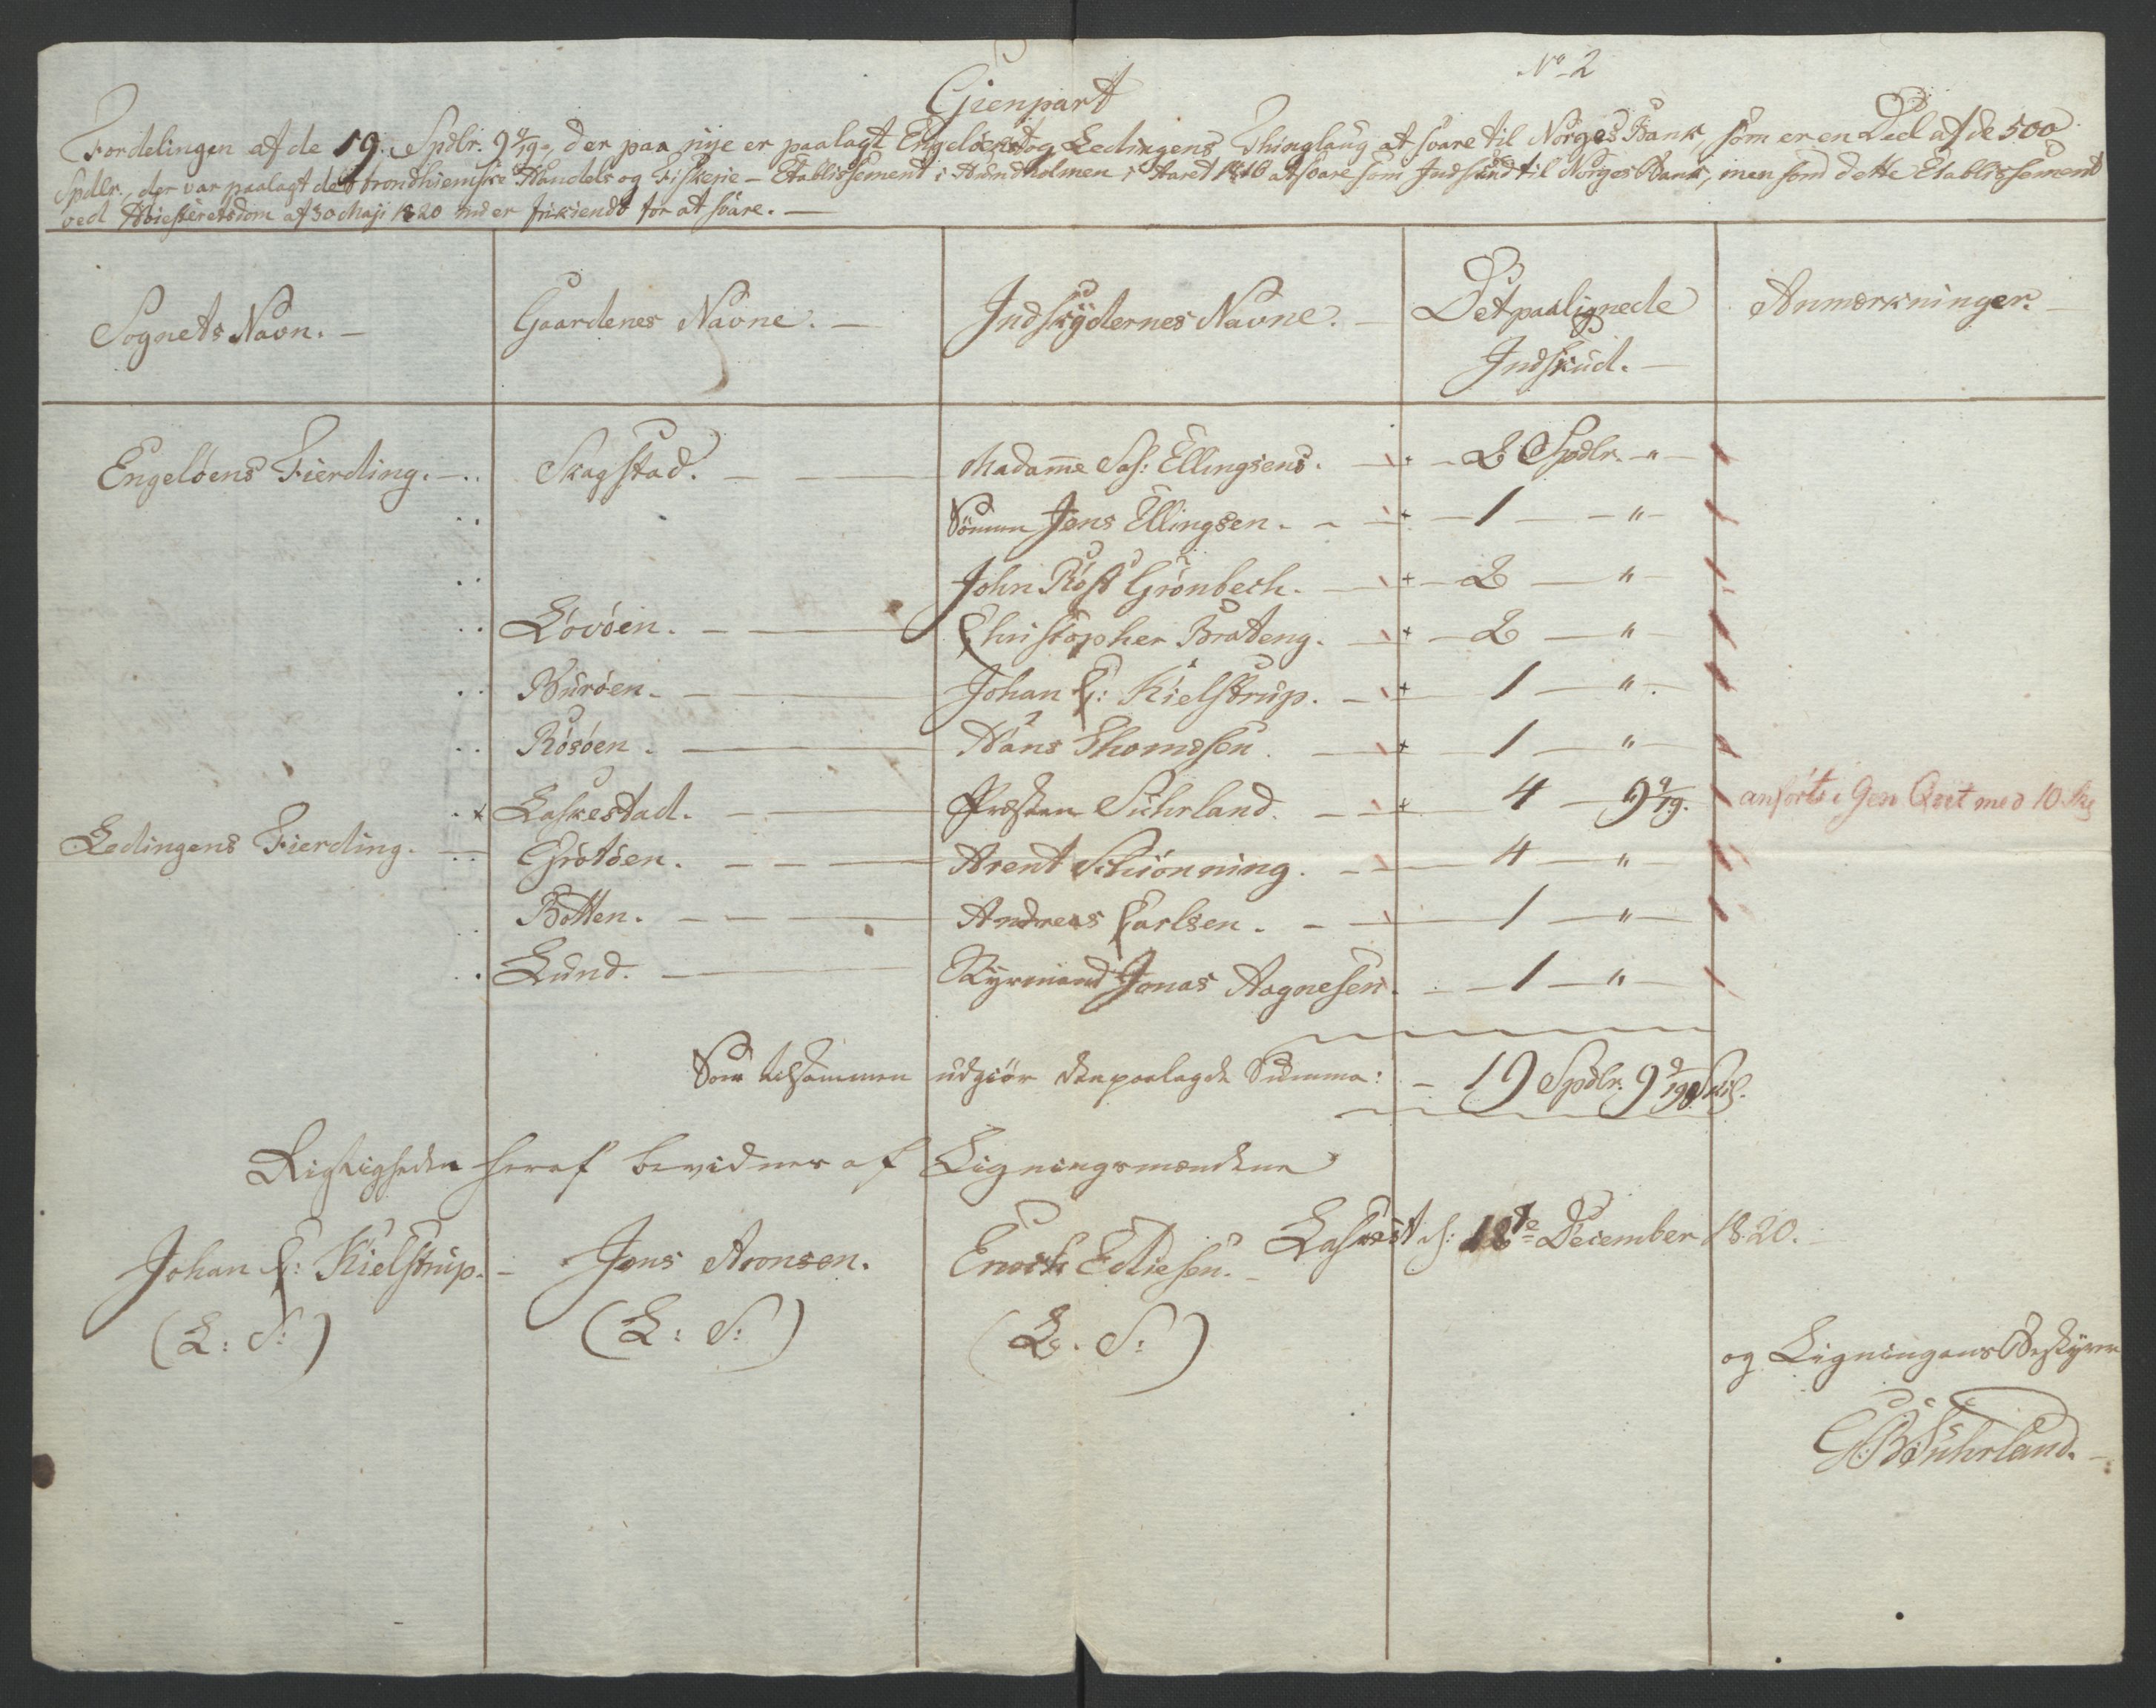 No 2
Gienpart
Fordelingen af de 19. Spdlr. 9 9/19, der paa nye er paalagt Engelöens og Ledingens Thinglaug at svare til Norges Bank, som er en Deel af de 500
Spdlr., der var paalagt det trondhiemske Handels og Fiskerie-Etablissement i Hundholmen i Aaret 1816 at svare som Indskud til Norges Bank, men som dette Etablissement
ved Höiesteretsdom af 30 Maji 1820 er frikiendt for at svare. —
Sognets Navn. — Gaardenes Navne. — Indskydernes Navne. — Det paalignede Indskud. — Anmærkninger. —
Engelöens Fierding. — Skagstad. — Madame Sal: Ellingsens. — 2 Spdlr. " —
Sönnen Jens Ellingsen. — 1 — "
John Röst Grönbech. — 2 — "
Lövöen. — Christopher Brateng. — 2 — "
Buröen. — Johan C: Kielstrup. — 1 — "
Rösöen. — Hans Thomesen. — 1 — "
Laskestad. — Præsten Suhrland. — 4 — 9 9/19. anförts i Gen Qvit med 10 Sk
Ledingens Fierding. — Grötöen. — Arent Schiönning. — 4 — "
Botten. — Andreas Carlsen. — 1 — "
Lund. — Styrmand Jonas Aagnesen. — 1 — "
Som tilsammen udgiör den paalagde Summa: — 19 Spdlr. 9 9/19 Skil.
Rigtigheden heraf bevidnes af Ligningsmændene
Laskest d: 18te December 1820.
Johan C: Kielstrup. — Jens Aronsen. Enoch Ediesen. —
(L: S:) (L: S:) (L. S:)
og Ligningens Bestyrer
G: B: Suhrland. —